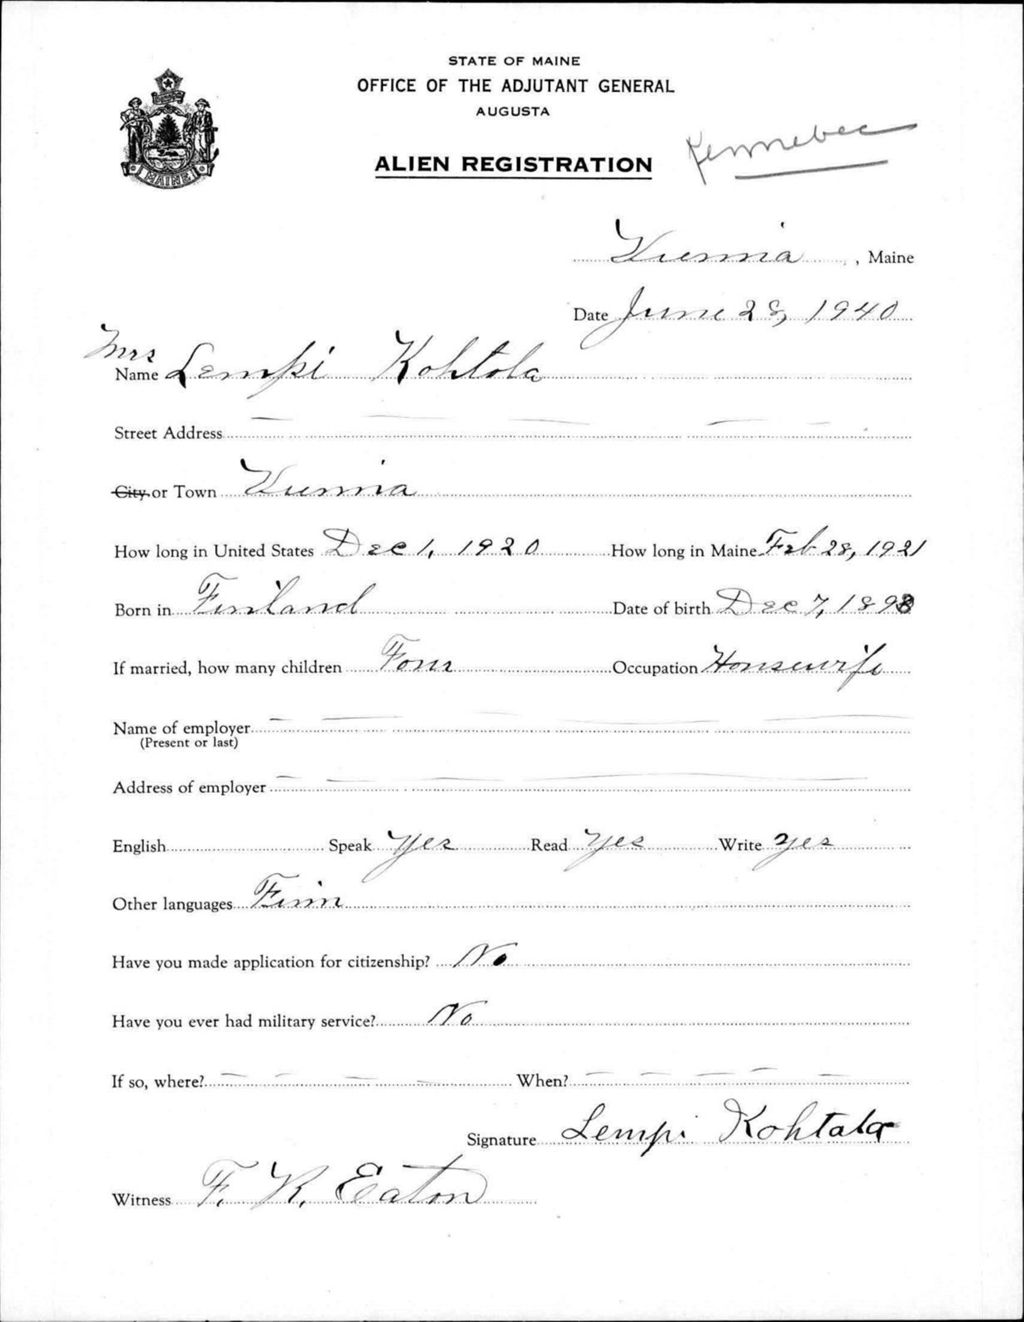 STATE OF MAINE
OFFICE OF THE ADJUTANT GENERAL
AUGUSTA
ALIEN REGISTRATION
Kennebec
MAINE
Vienna, Maine
Date June 28, 1940
Mrs
Name Lempi Kohtala
Street Address
City or Town Vienna
How long in United States Dec 1, 1920 How long in Maine Feb 28, 1921
Born in Finland Date of birth Dec 7, 1898
If married, how many children Four Occupation Housewife
Name of employer
(Present or last)
Address of employer
English Speak Yes Read Yes Write Yes
Other languages Finn
Have you made application for citizenship? No
Have you ever had military service? No
If so, where? When?
Signature Lempi Kohtala
Witness F. K. Eaton